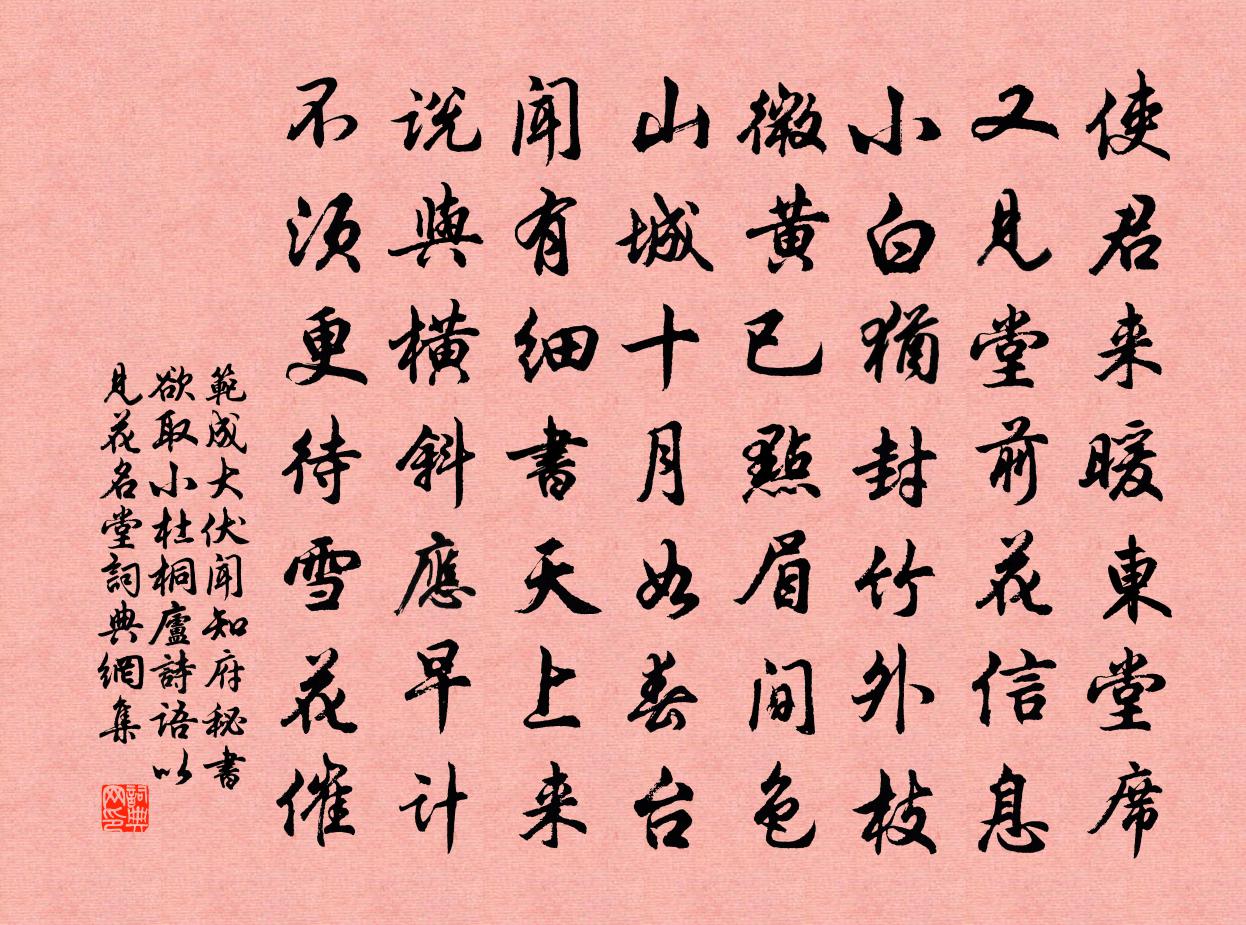 使君来暖東堂席
又見堂前花信息
小白猶封竹外枝
微黄已點眉間色
山城十月如春台
聞有细書天上来
说與横斜應早计
不须更待雪花催
範成大伏聞知府秘書
欲取小杜桐廬詩語以
見花名堂詞典網集
詞典
网印